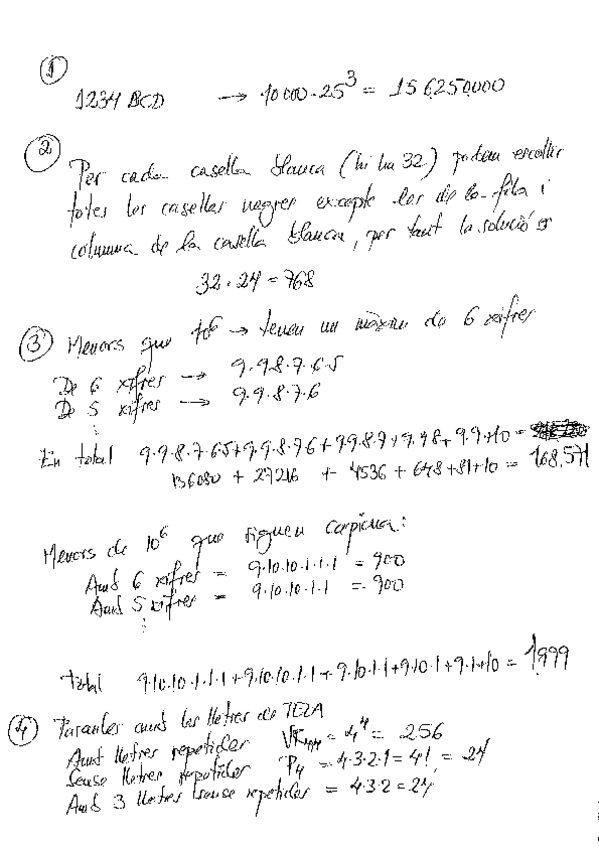 1
1234 BCD → 10000·25³ = 156250000
2 Per cada casella blanca (hi ha 32) podem escollir
totes les caselles negres excepte les de la fila i
columna de la casella blanca, per tant la solució és
32·24 = 768
3 Menors que 10⁶ → tenen un màxim de 6 xifres
De 6 xifres → 9·9·8·7·6·5
De 5 xifres → 9·9·8·7·6
⋮
En total 9·9·8·7·6·5+9·9·8·7·6+9·9·8·7+9·9·8+9·9+10 =
136080 + 27216 + 4536 + 648 + 81 + 10 = 168.571
Menors de 10⁶ que siguen capicua:
Amb 6 xifres = 9·10·10·1·1·1 = 900
Amb 5 xifres = 9·10·10·1·1 = 900
⋮
total 9·10·10·1·1·1+9·10·10·1·1+9·10·1·1+9·10·1+9·1+10 = 1.999
4 Paraules amb les lletres de TEZA
Amb lletres repetides VR₄,₄ = 4⁴ = 256
Sense lletres repetides P₄ = 4·3·2·1 = 4! = 24
Amb 3 lletres sense repetides = 4·3·2 = 24